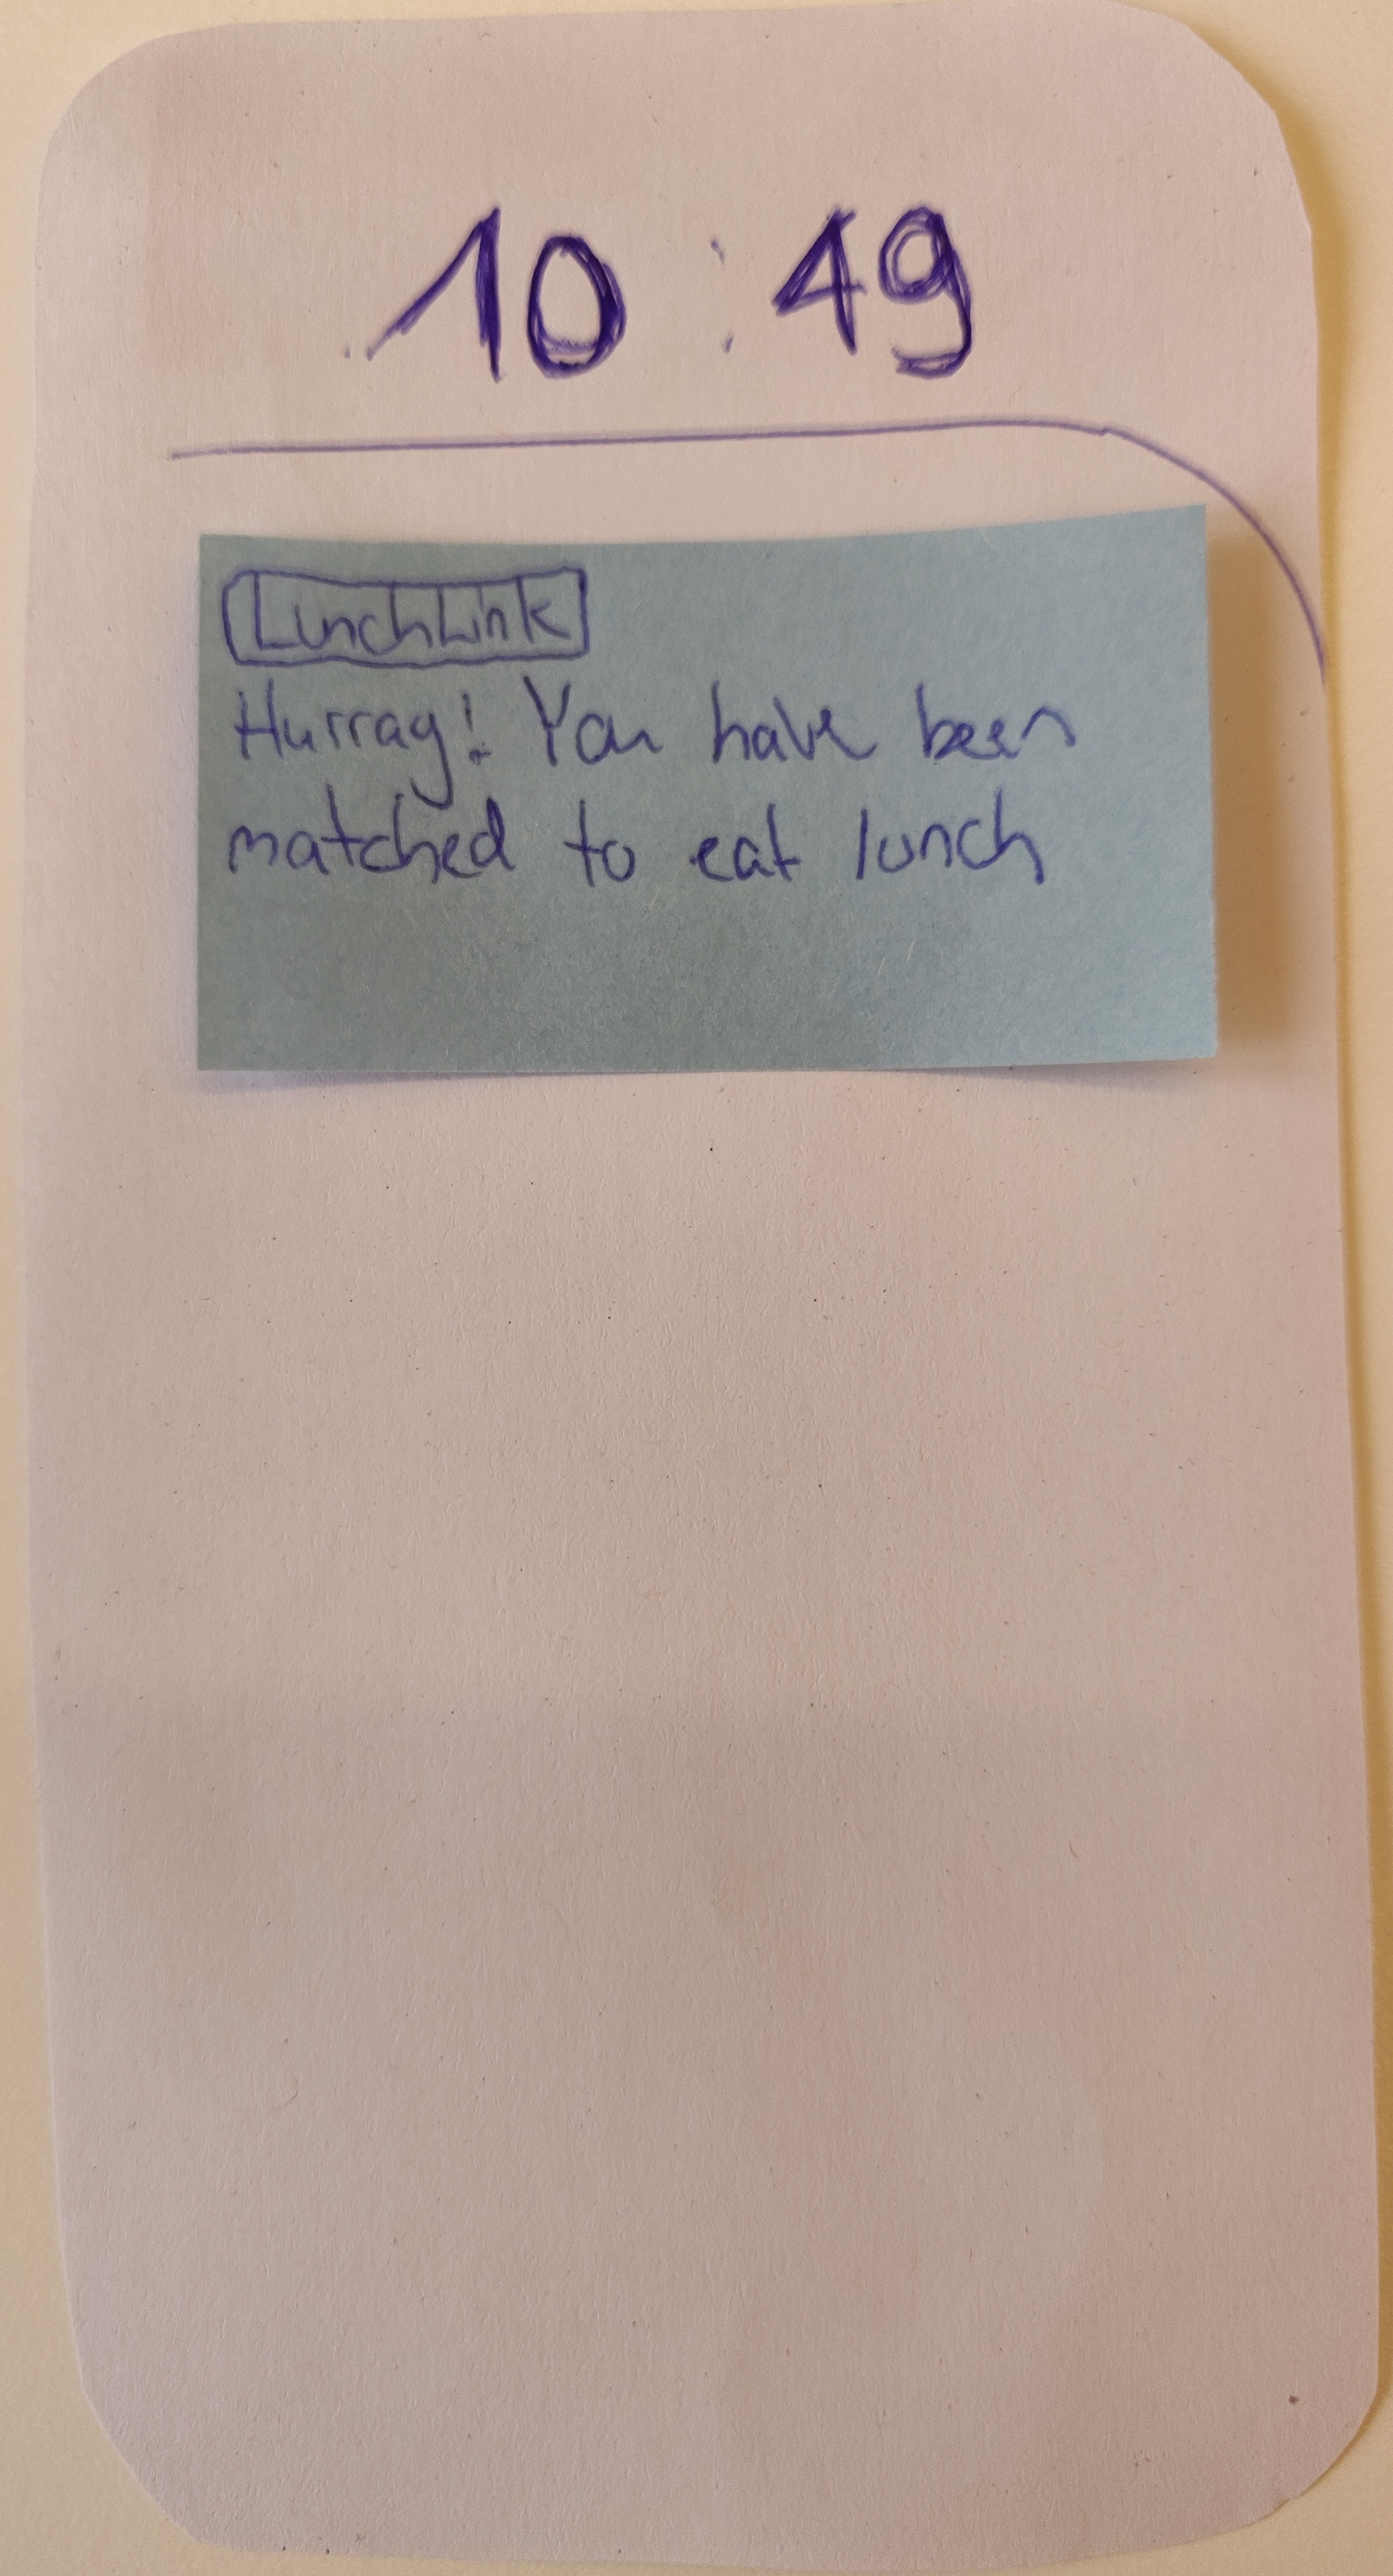 10:49
LunchLink
Hurray! You have been
matched to eat lunch